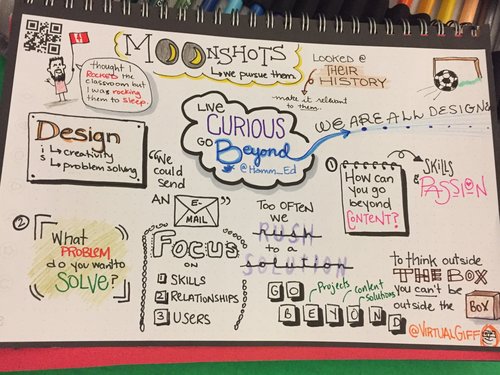 MOONSHOTS
↳ we pursue them
LOOKED @
THEIR
HISTORY
make it relevant
to them
thought I
ROCKED the
classroom but
I was rocking
them to SLEEP.
LIVE
CURIOUS
GO
BEYOND
@Hamm_Ed
WE ARE ALL DESIGNE
Design
is
↳ creativity
↳ problem solving
"We
could
send
AN
E-
MAIL"
1
How can
you go
beyond
CONTENT?
SKILLS
&
PASSION
2
What
PROBLEM
do you want to
SOLVE?
FOCUS
ON
1 SKILLS
2 RELATIONSHIPS
3 USERS
TOO OFTEN
we
RUSH
to a
SOLUTION
GO
BEYOND
Projects
content
solutions
to think outside
THE BOX
you can't be
outside the
BOX
@VIRTUALGIFF